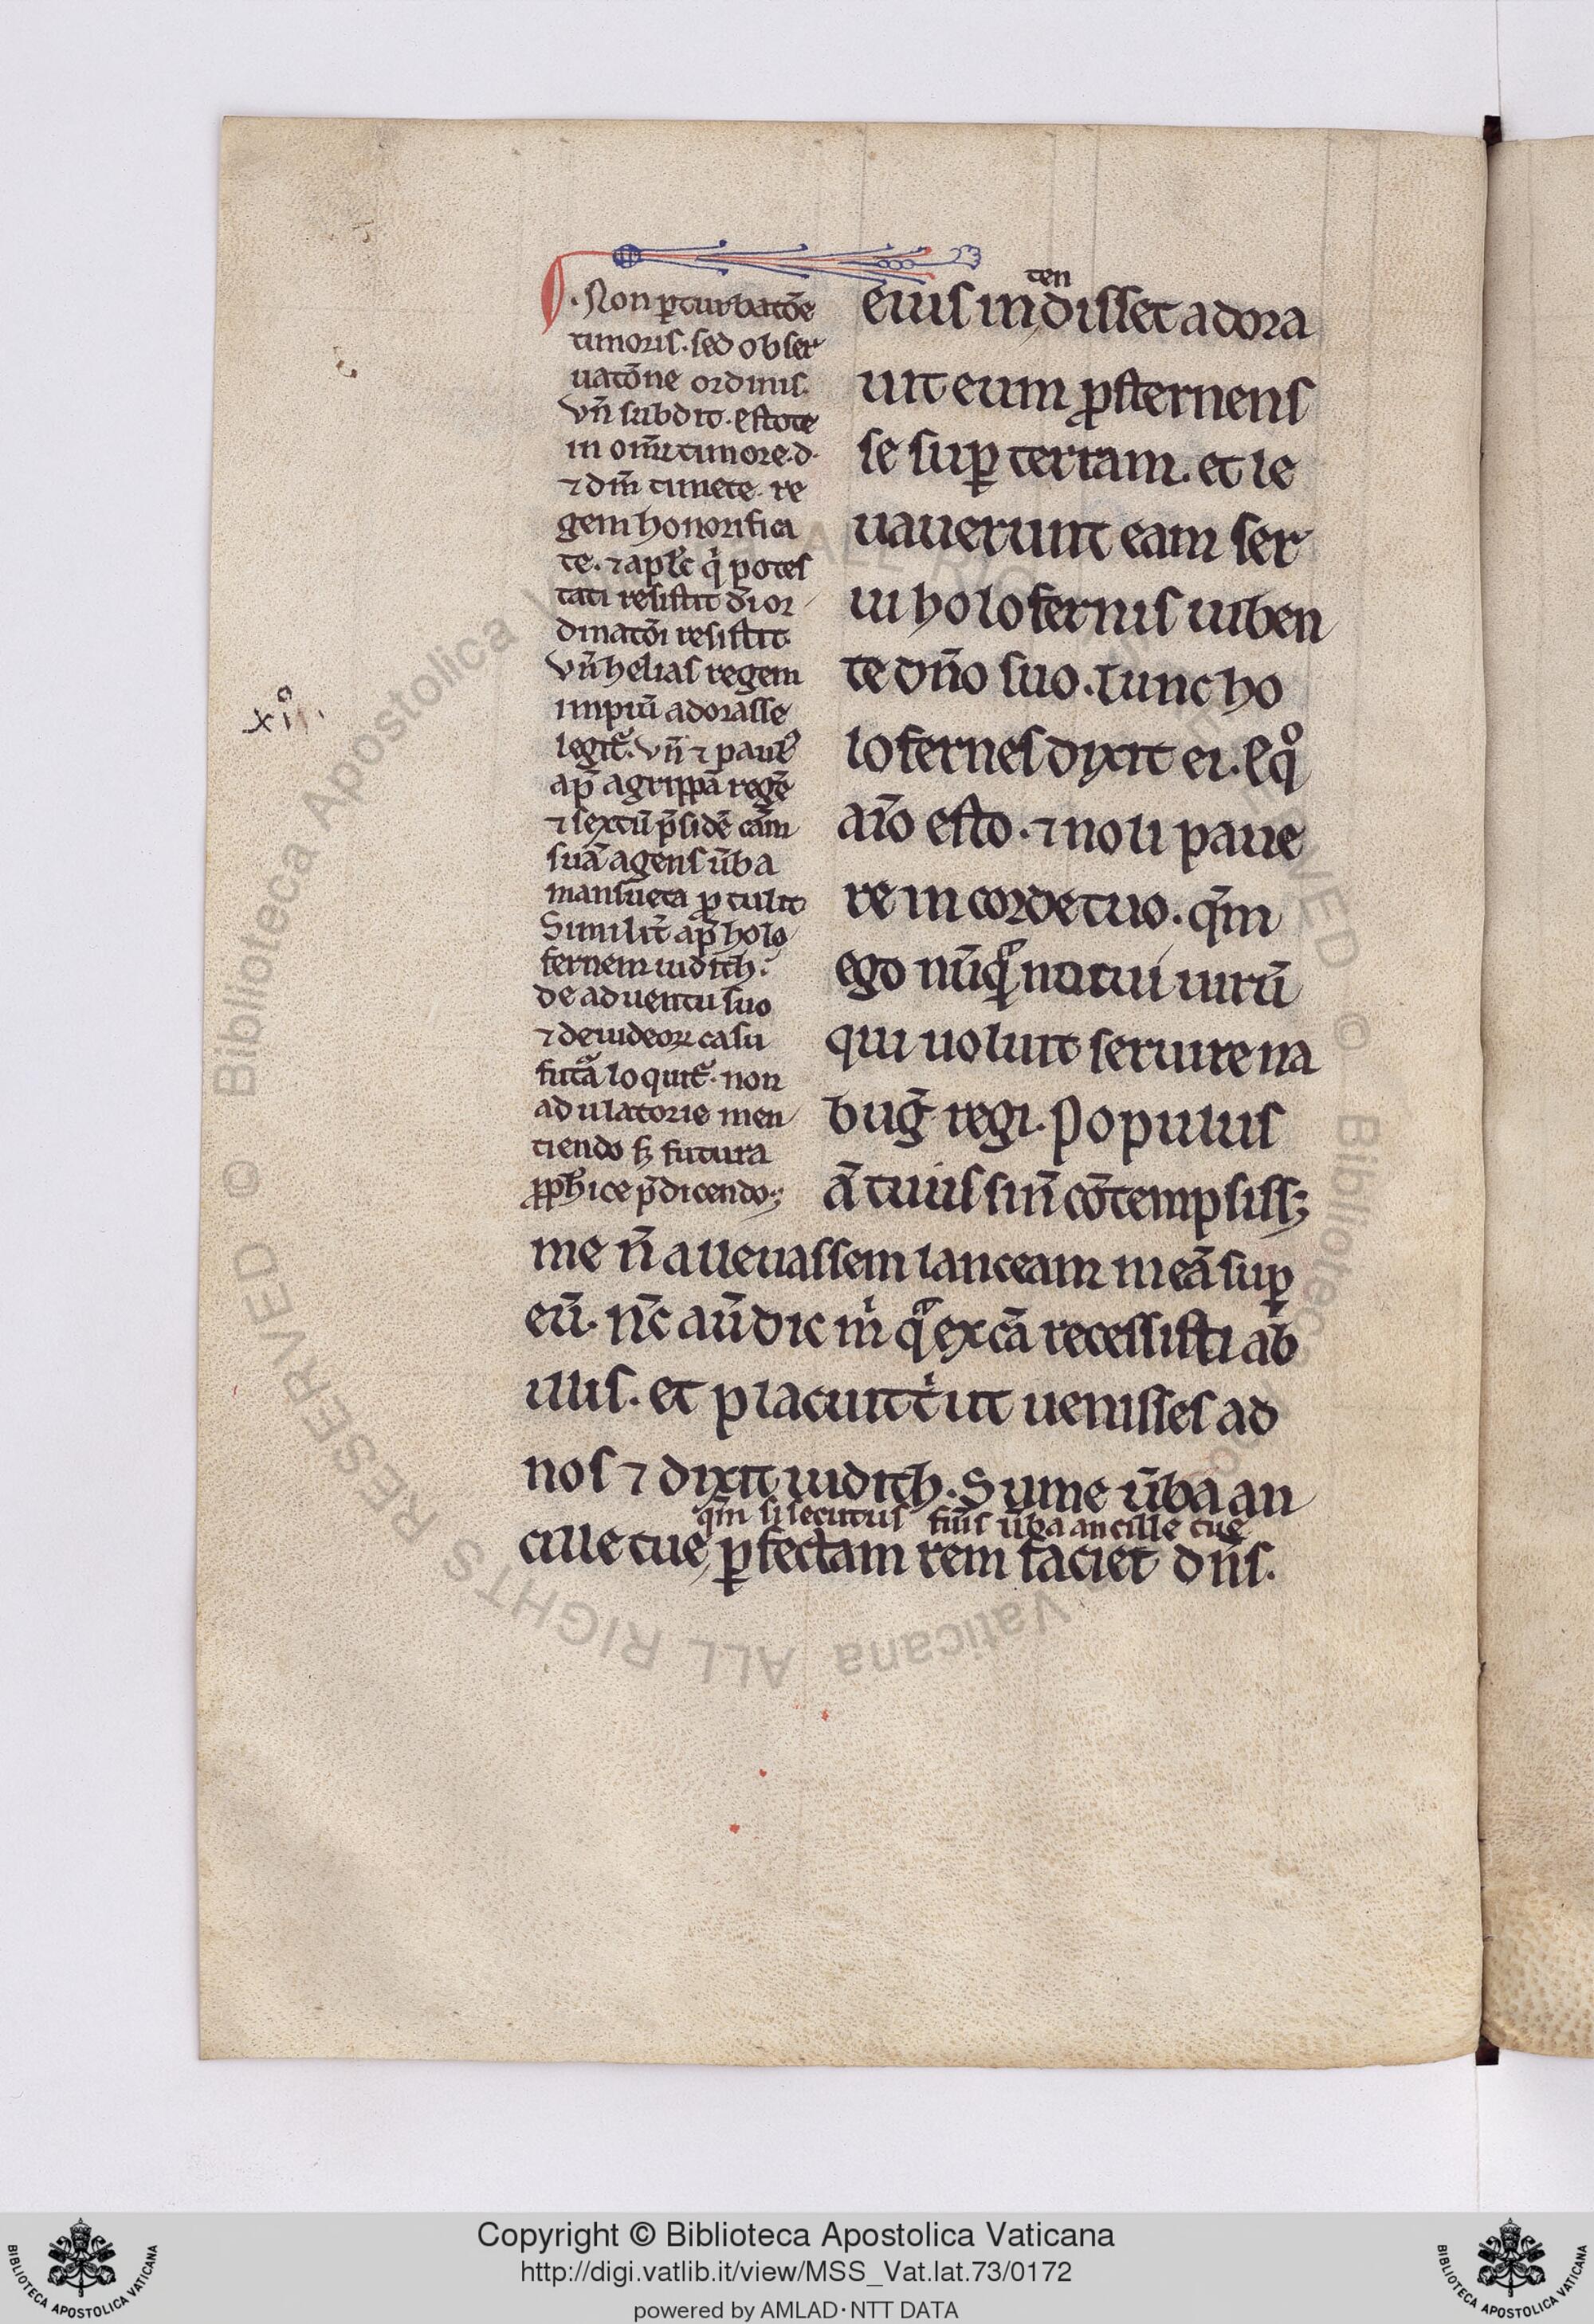 · Non ꝑturbatōe
timoris. sed obser
uatōne ordinis.
vn̄ subdit. estote
in om̄i timore. d.
⁊ dm̄ timete. re
gem honorifica
te. ⁊ apl̄c q̇ potes
tati resistit dī or
dinatōi resistit.
vn̄ helias regem
impiū adorasse
legit᷑. vn̄ ⁊ paulꝰ
ap̄ agrippā regē
⁊ sextū p̄sidē cām
suā agens ūba
mansueta ꝓtulit
Similit̄ ap̄ holo
fernem iudith.
de aduentu suo
⁊ de iudeoꝝ casu
futᷓa loquit᷑. non
adulatorie men
tiendo sꝫ futura
ꝓph̄ice p̄dicendo.
xi°
ten
eius indisset adora
uit eum ꝓsternens
se suꝑ terram. et le
uauerunt eam ser
ui holofernis iuben
te dn̄o suo. Tunc ho
lofernes dixit ei. Eq̊
aīo esto. ⁊ noli paue
re in corde tuo. qm̄
ego nūqᷓ nocui uirū
qui uoluit seruire na
buḡ regi. Populus
ā tuus si n̄ cōtempsissꝫ
me n̄ aleuassem lanceam meā suꝑ
eū. nc̄ aū dic m̍ qᷓ ex cā recessisti ab
illis. et placuit t̍ ut uenisses ad
nos ⁊ dixit iudith. Sume ūba an
qm̄ si secutus fūis ūba ancille tue
cille tue ꝑfectam rem faciet dn̄s.
Copyright © Biblioteca Apostolica Vaticana
http://digi.vatlib.it/view/MSS_Vat.lat.73/0172
powered by AMLAD·NTT DATA
© Biblioteca Apostolica Vaticana ALL RIGHTS RESERVED
© Biblioteca Apostolica Vaticana ALL RIGHTS RESERVED
BIBLIOTECA APOSTOLICA VATICANA
BIBLIOTECA APOSTOLICA VATICANA